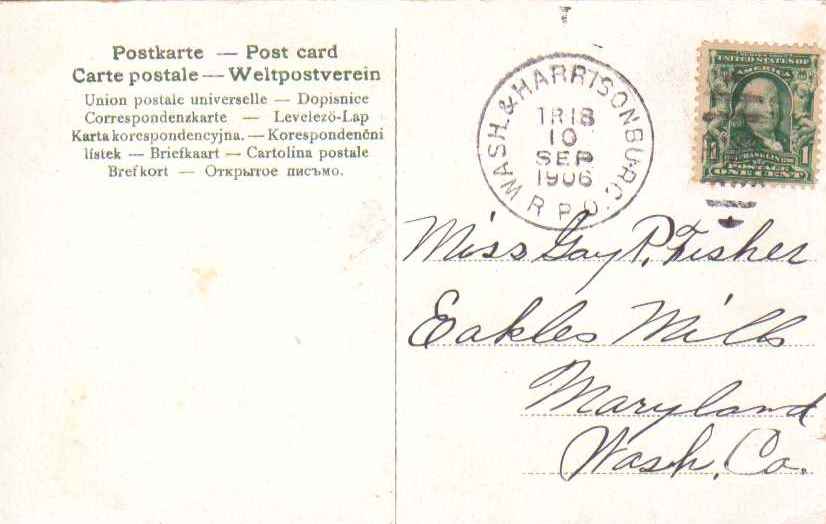 Postkarte — Post card
Carte postale — Weltpostverein
Union postale universelle — Dopisnice
Correspondenzkarte — Levelezö-Lap
Karta korespondencyjna. — Korespondenční
lístek — Briefkaart — Cartolina postale
Brefkort — Открытое письмо.
WASH. & HARRISONBURG.
TR18
10
SEP
1906
R.P.O.
UNITED STATES OF
AMERICA
1 FRANKLIN 1
POSTAGE
ONE CENT
Miss Gay P. Fisher
Eakles Mills
Maryland
Wash. Co.